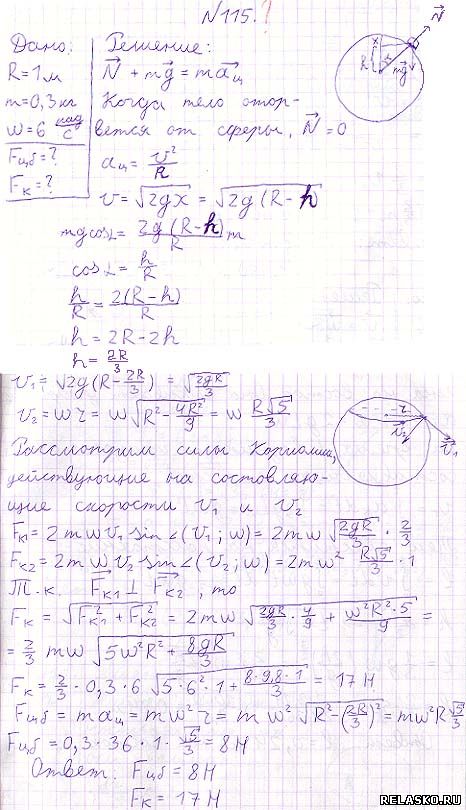 N115.?
Дано:
R=1м
m=0,3кг
w=6 рад/с
Fцб=?
Fк=?
Решение:
N⃗ + mg⃗ = ma⃗ц
Когда тело отор-
вется от сферы, N⃗ = 0
aц = v²/R
v = √(2gx) = √(2g(R-h))
mg cosα = 2g(R-h)/R m
cosα = h/R
h/R = 2(R-h)/R
h = 2R-2h
h = 2R/3
x
R
α
h
N⃗
mg⃗
v₁ = √(2g(R-2R/3)) = √(2gR/3)
v₂ = wr = w√(R²-4R²/9) = w R√5/3
r
v⃗₂
v⃗₁
Рассмотрим силы Кориолиса,
действующие на составляю-
щие скорости v₁ и v₂
Fк1 = 2mwv₁ sin∠(v₁;w) = 2mw √(2gR/3) · 2/3
Fк2 = 2mwv₂ sin∠(v₂;w) = 2mw² R√5/3 · 1
Т.к. F⃗к1 ⊥ F⃗к2, то
Fк = √(F²к1+F²к2) = 2mw √(2gR/3 · 4/9 + w²R²·5/9) =
= 2/3 mw √(5w²R² + 8gR/3)
Fк = 2/3 · 0,3 · 6 √(5·6²·1 + 8·9,8·1/3) = 17Н
Fцб = maц = mw²r = mw² √(R²-(2R/3)²) = mw²R √5/3
Fцб = 0,3 · 36 · 1 · √5/3 = 8Н
Ответ: Fцб = 8Н
Fк = 17Н
RELASKO.RU